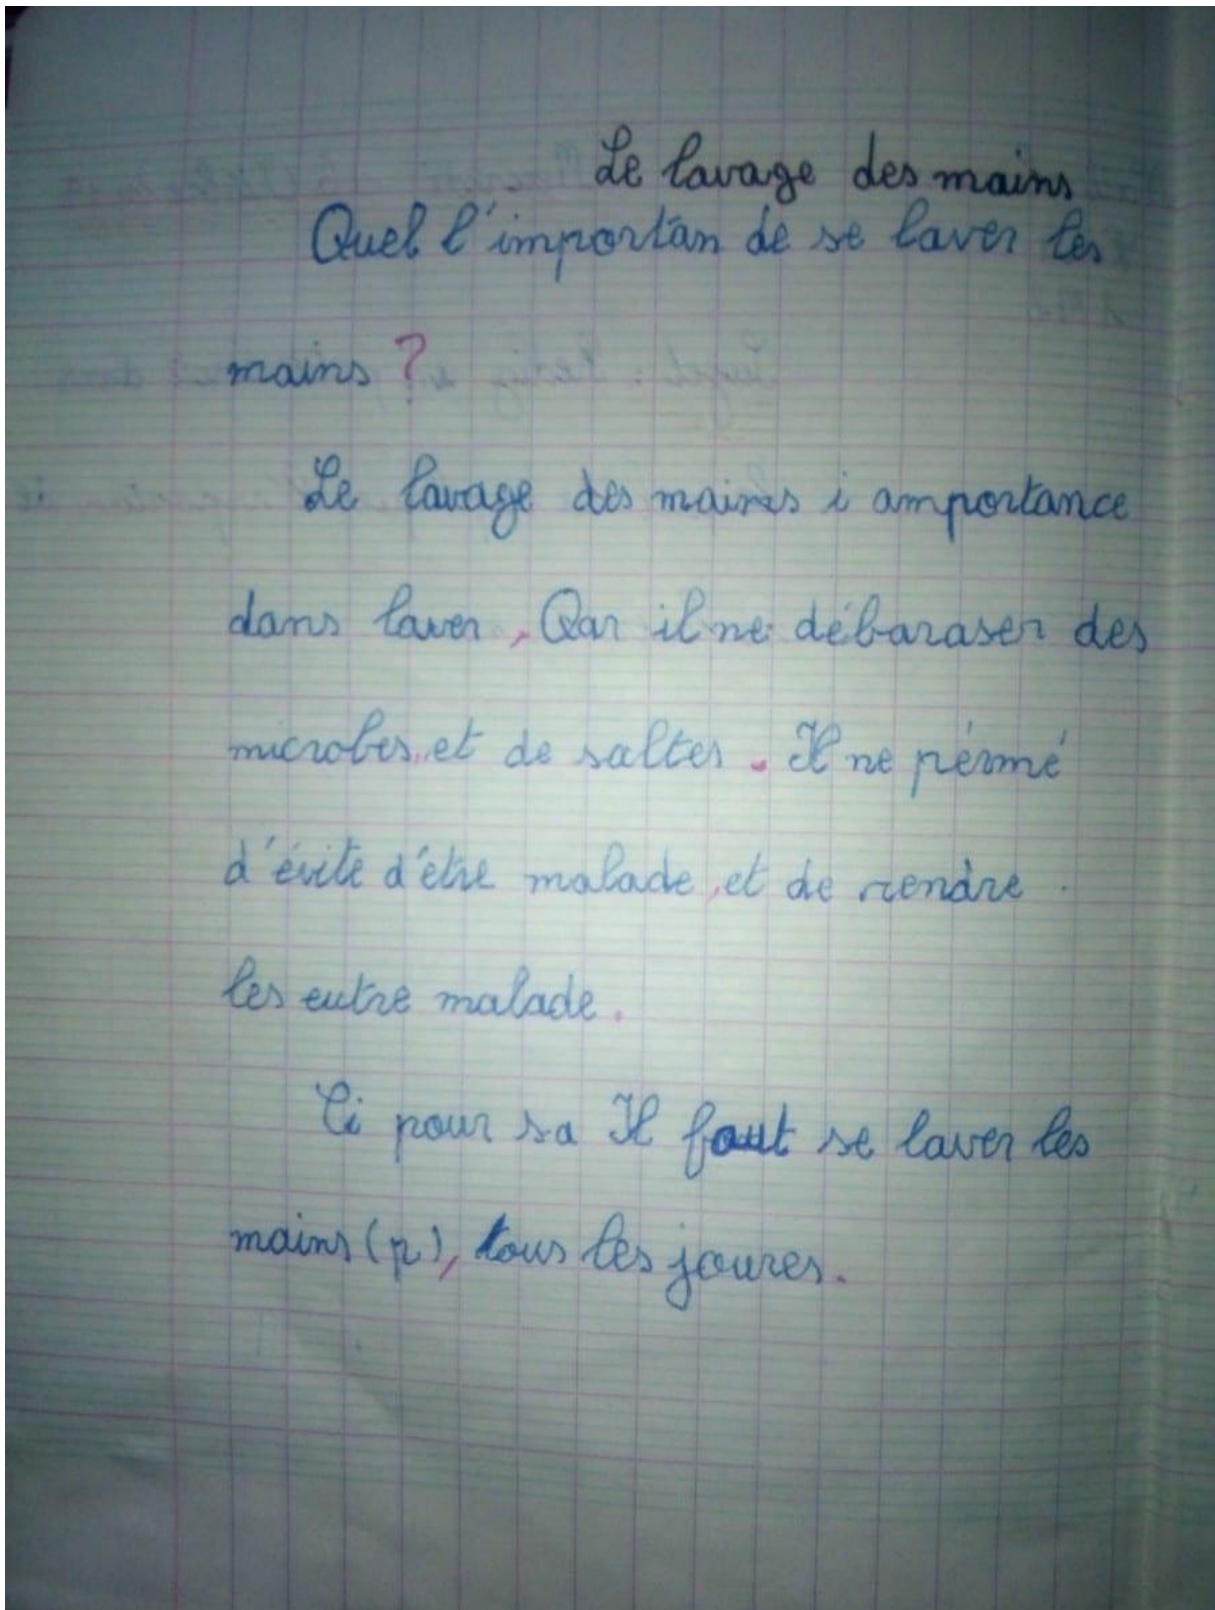 Le lavage des mains
Quel l'importan de se laver les
mains ?
Le lavage des mains i amportance
dans laver, Qar il ne débaraser des
microbes, et de saltes. Il ne pérmé
d'évité d'être malade, et de rendre
les eutre malade.
Ci pour sa Il faut se laver les
mains (p), tous les joures.